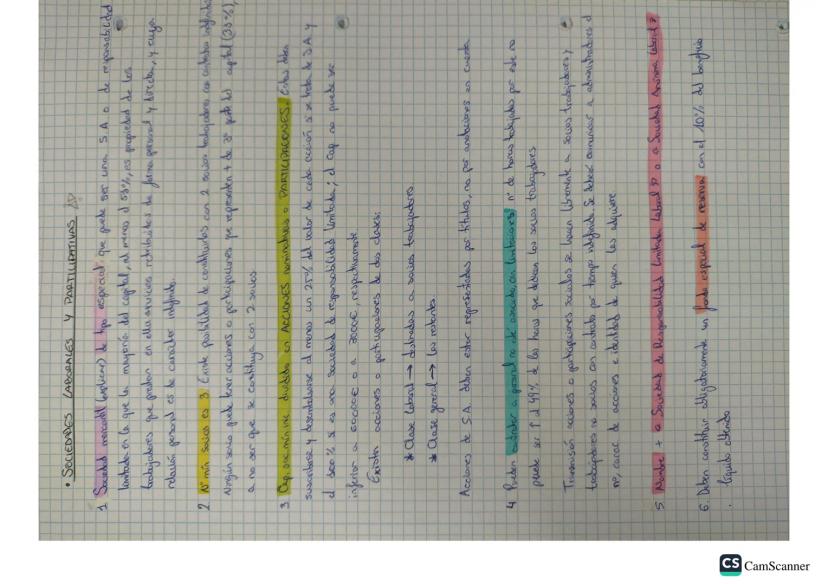 • SOCIEDADES LABORALES Y PARTICIPATIVAS
1 Sociedad mercantil (explicar) de tipo especial que puede ser una S.A o de responsabilidad
limitada en la que la mayoría del capital, al menos el %, es propiedad de los
trabajadores que prestan en ella servicios retribuidos de forma personal y directa, y cuya
relación personal es de carácter indefinido.
2 Nº mín socios es 3 Existe posibilidad de constituirlas con 2 socios trabajadores con contratos indefinidos
Ningún socio puede tener acciones o participaciones que representen + de 3ª parte del capital (33%),
a no ser que se constituya con 2 socios
3 Cap. soc mínimo dividido en ACCIONES nominativas o PARTICIPACIONES. Éstas deben
suscribirse y desembolsarse al menos un 25% del valor de cada acción si se trata de S.A y
el 100% si es una Sociedad de responsabilidad limitada; el Cap. no puede ser
inferior a 60000€ o a 3000€, respectivamente
Existen acciones o participaciones de dos clases:
* Clase laboral → destinadas a socios trabajadores
* Clase general → los restantes
Acciones de S.A. deben estar representadas por títulos, no por anotaciones en cuenta
4 Pueden contratar a personal no asociado, con limitaciones: nº de horas trabajadas por este no
puede ser ↑ al 49% de las horas que realicen los socios trabajadores
Transmisión acciones o participaciones sociales se hacen libremente a socios trabajadores y
trabajadores no socios con contrato por tiempo indefinido. Se deberá comunicar a administradores el
nº, clase de acciones e identidad de quien las adquiere
5 Nombre + « Sociedad de Responsabilidad Limitada Laboral » o « Sociedad Anónima Laboral »
6. Deben constituir obligatoriamente un fondo especial de reserva con el 10% del beneficio
líquido obtenido
CS CamScanner